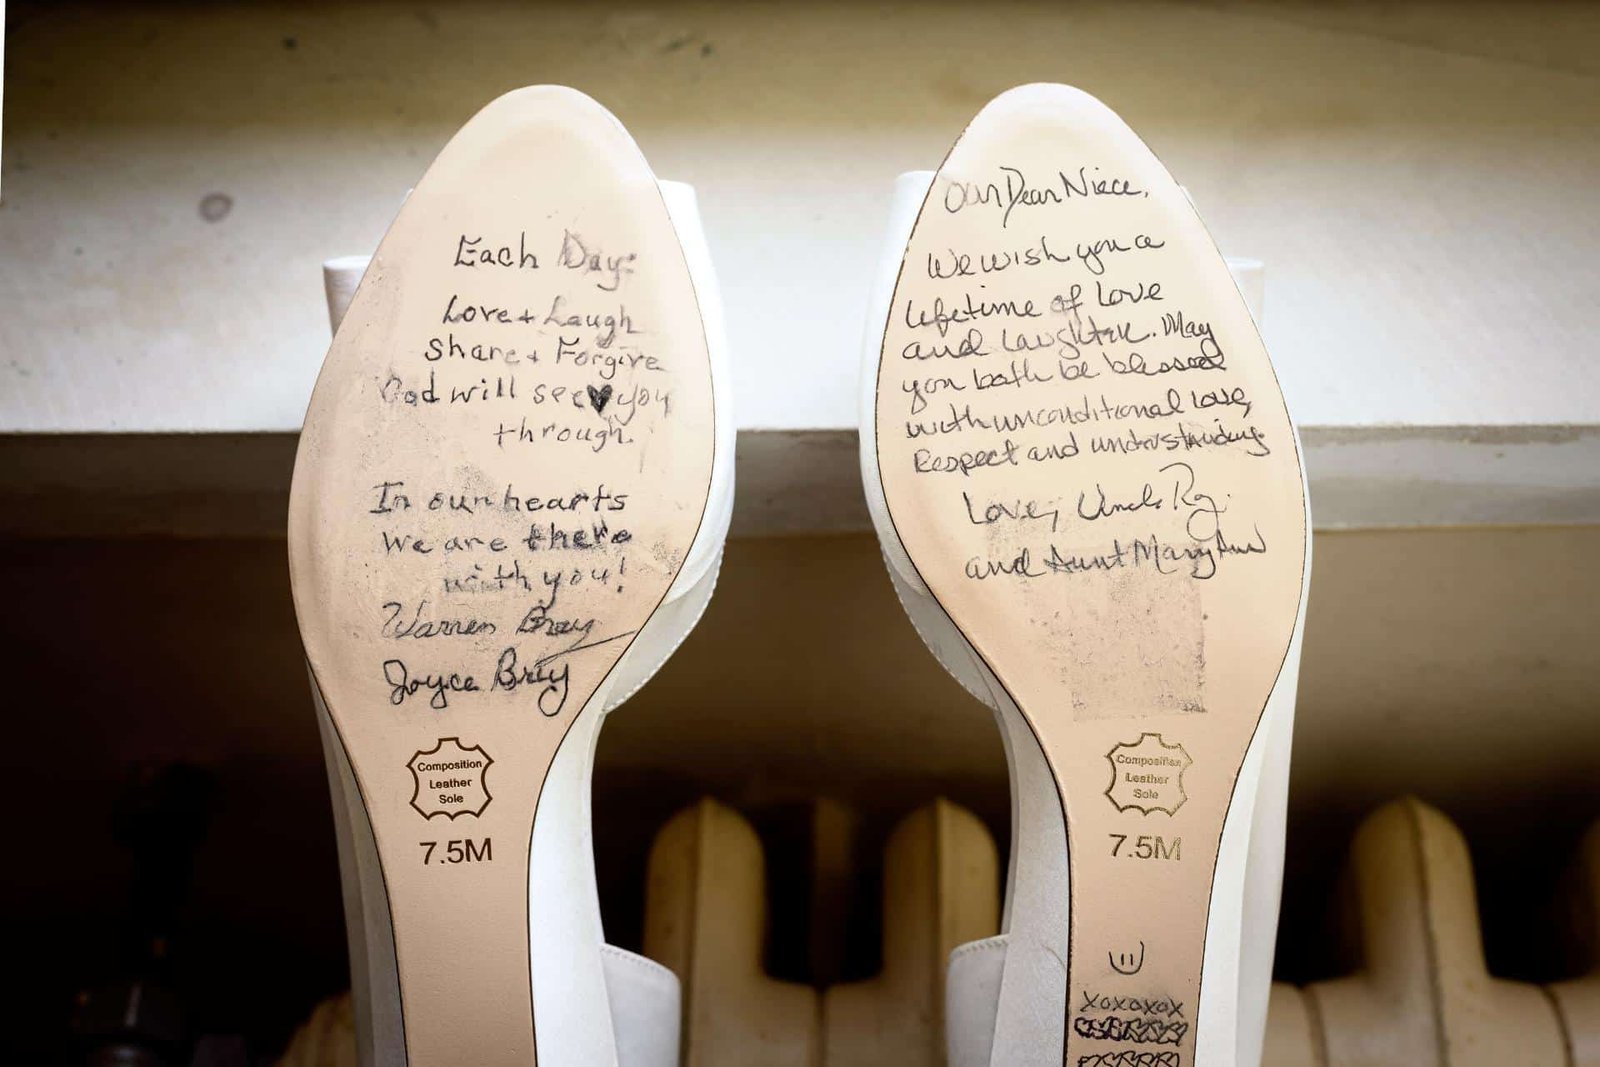 Each Day:
Love + Laugh
Share + Forgive
God will see ♥ you
through.
In our hearts
We are there
with you!
Warren Bray
Joyce Bray
Composition
Leather
Sole
7.5M
Our Dear Niece,
We wish you a
lifetime of love
and laughter. May
you both be blessed
with unconditional love,
Respect and understanding.
Love, Uncle Roy
and Aunt Mary Ann
Composition
Leather
Sole
7.5M
xoxoxox